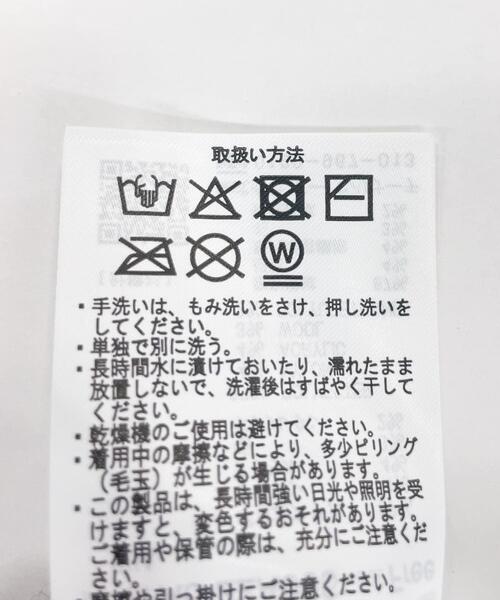 取扱い方法
W
・手洗いは、もみ洗いをさけ、押し洗いを
してください。
・単独で別に洗う。
・長時間水に漬けておいたり、濡れたまま
放置しないで、洗濯後はすばやく干して
ください。
・乾燥機のご使用は避けてください。
・着用中の摩擦などにより、多少ピリング
（毛玉）が生じる場合があります。
・この製品は、長時間強い日光や照明を受
けますと、変色するおそれがあります。
ご着用や保管の際は、充分にご注意くだ
さい。
・摩擦や引っ掛けにご注意ください。